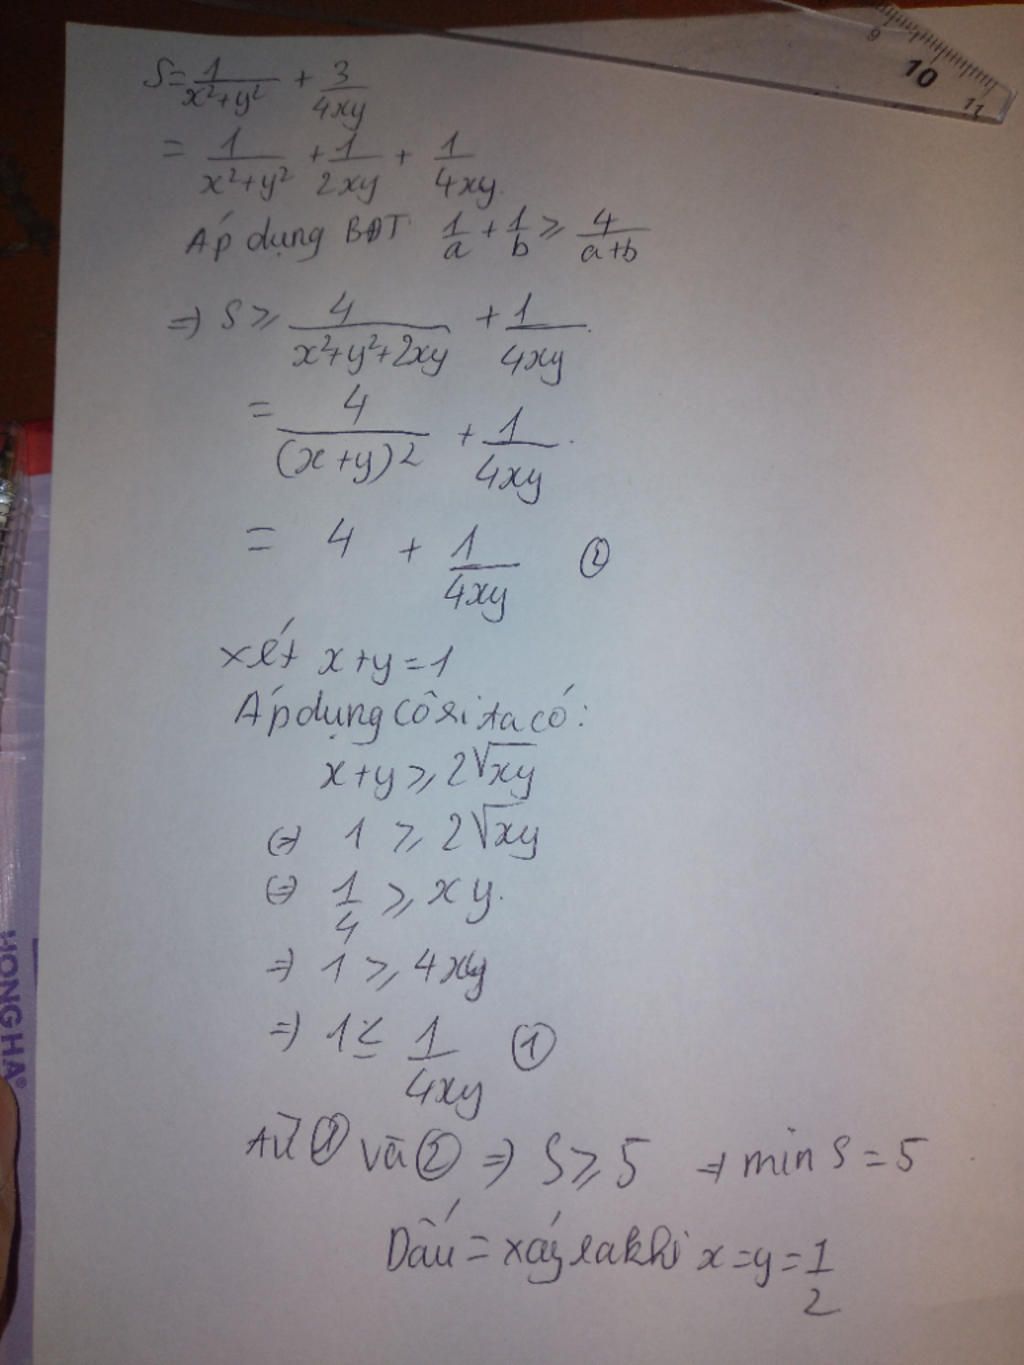 9 10 11
S = 1/(x²+y²) + 3/(4xy)
= 1/(x²+y²) + 1/(2xy) + 1/(4xy).
Áp dụng BĐT 1/a + 1/b ≥ 4/(a+b)
=> S ≥ 4/(x²+y²+2xy) + 1/(4xy).
= 4/(x+y)² + 1/(4xy).
= 4 + 1/(4xy) ②
xét x+y=1
Áp dụng Côsi ta có:
x+y ≥ 2√xy
<=> 1 ≥ 2√xy
<=> 1/4 ≥ xy.
=> 1 ≥ 4xy
=> 1 ≤ 1/(4xy) ①
Từ ① và ② => S ≥ 5 => min S = 5
Dấu = xảy ra khi x=y=1/2
HONG HA®